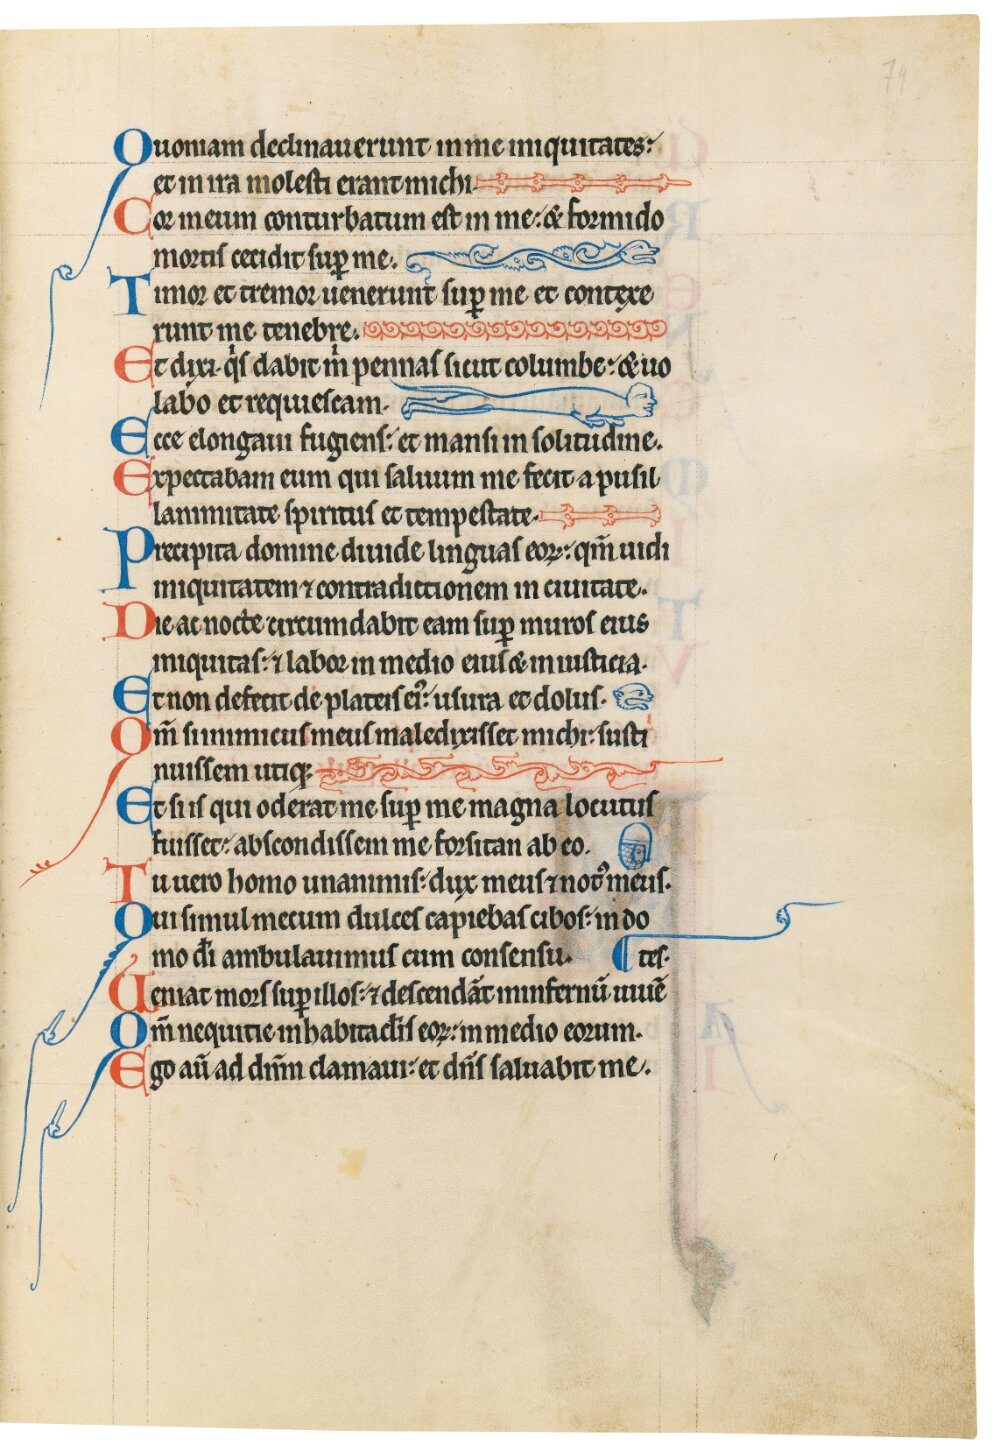 74
Quoniam declinauerunt in me iniquitates:
et in ira molesti erant michi.
Cor meum conturbatum est in me: & formido
mortis cecidit sup̲ me.
Timor et tremor uenerunt sup̲ me et contexe
runt me tenebre.
Et dixi. qͥs dabit m̅ pennas sicut columbe: & uo
labo et requiescam.
Ecce elongaui fugiens: et mansi in solitudine.
Expectabam eum qui saluum me fecit a pusil
lanimitate spiritus et tempestate.
Precipita domine diuide linguas eoꝝ: qm̅ uidi
iniquitatem ⁊ contradictionem in ciuitate.
Die ac nocte circumdabit eam sup̲ muros eius
iniquitas: ⁊ labor in medio eius & iniusticia.
Et non defecit de plateis eiꝰ: usura et dolus.
Qm̅ si inimicus meus maledixisset michi: susti
nuissem utiqꝫ
Et si is qui oderat me sup̲ me magna locutus
fuisset: abscondissem me forsitan ab eo.
Tu uero homo unanimis: dux meus ⁊ notꝰ meus.
Qui simul mecum dulces capiebas cibos: in do
mo di̅ ambulauimus cum consensu. tes.
Ueniat mors sup̲ illos: ⁊ descenda̅t in infernu̅ uiue̅
Qm̅ nequitie in habitac̅lis eoꝝ: in medio eorum.
Ego au̅ ad dn̅m clamaui: et dn̅s saluabit me.